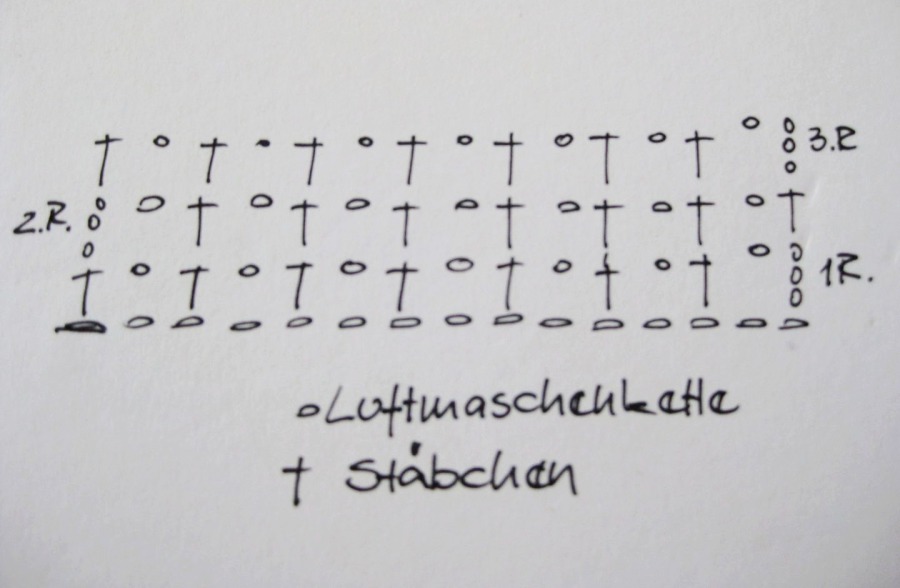 3.R
2.R.
1R.
Luftmaschenkette
† Stäbchen